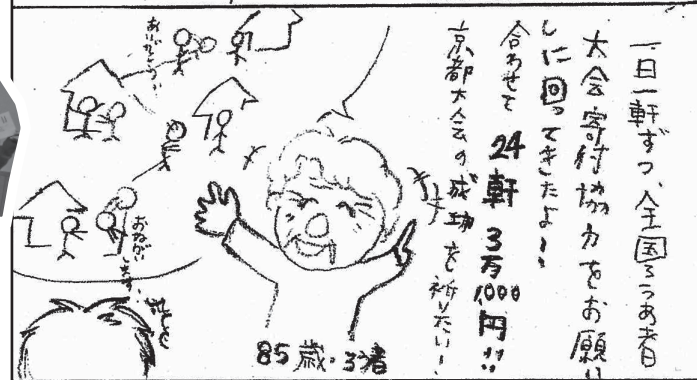 一日一軒ずつ、全国ろうあ者
大会寄付協力をお願い
しに回ってきたよ！！
合わせて 24軒 3万1,000円！！
京都大会の成功を祈りたい！
ありがとう！
おねがいします。
85歳・3渚